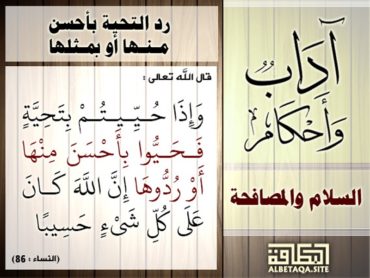 آدَابٌ
وَأَحْكَام
السلام والمصافحة
البطاقة
ALBETAQA.SITE
رد التحية بأحسن
منـها أو بمثلها
قال اللَّه تعالى :
وَإِذَا حُيِّيتُم بِتَحِيَّةٍ
فَحَيُّوا بِأَحْسَنَ مِنْهَا
أَوْ رُدُّوهَا إِنَّ اللَّهَ كَانَ
عَلَى كُلِّ شَيْءٍ حَسِيبًا
(النساء : 86)